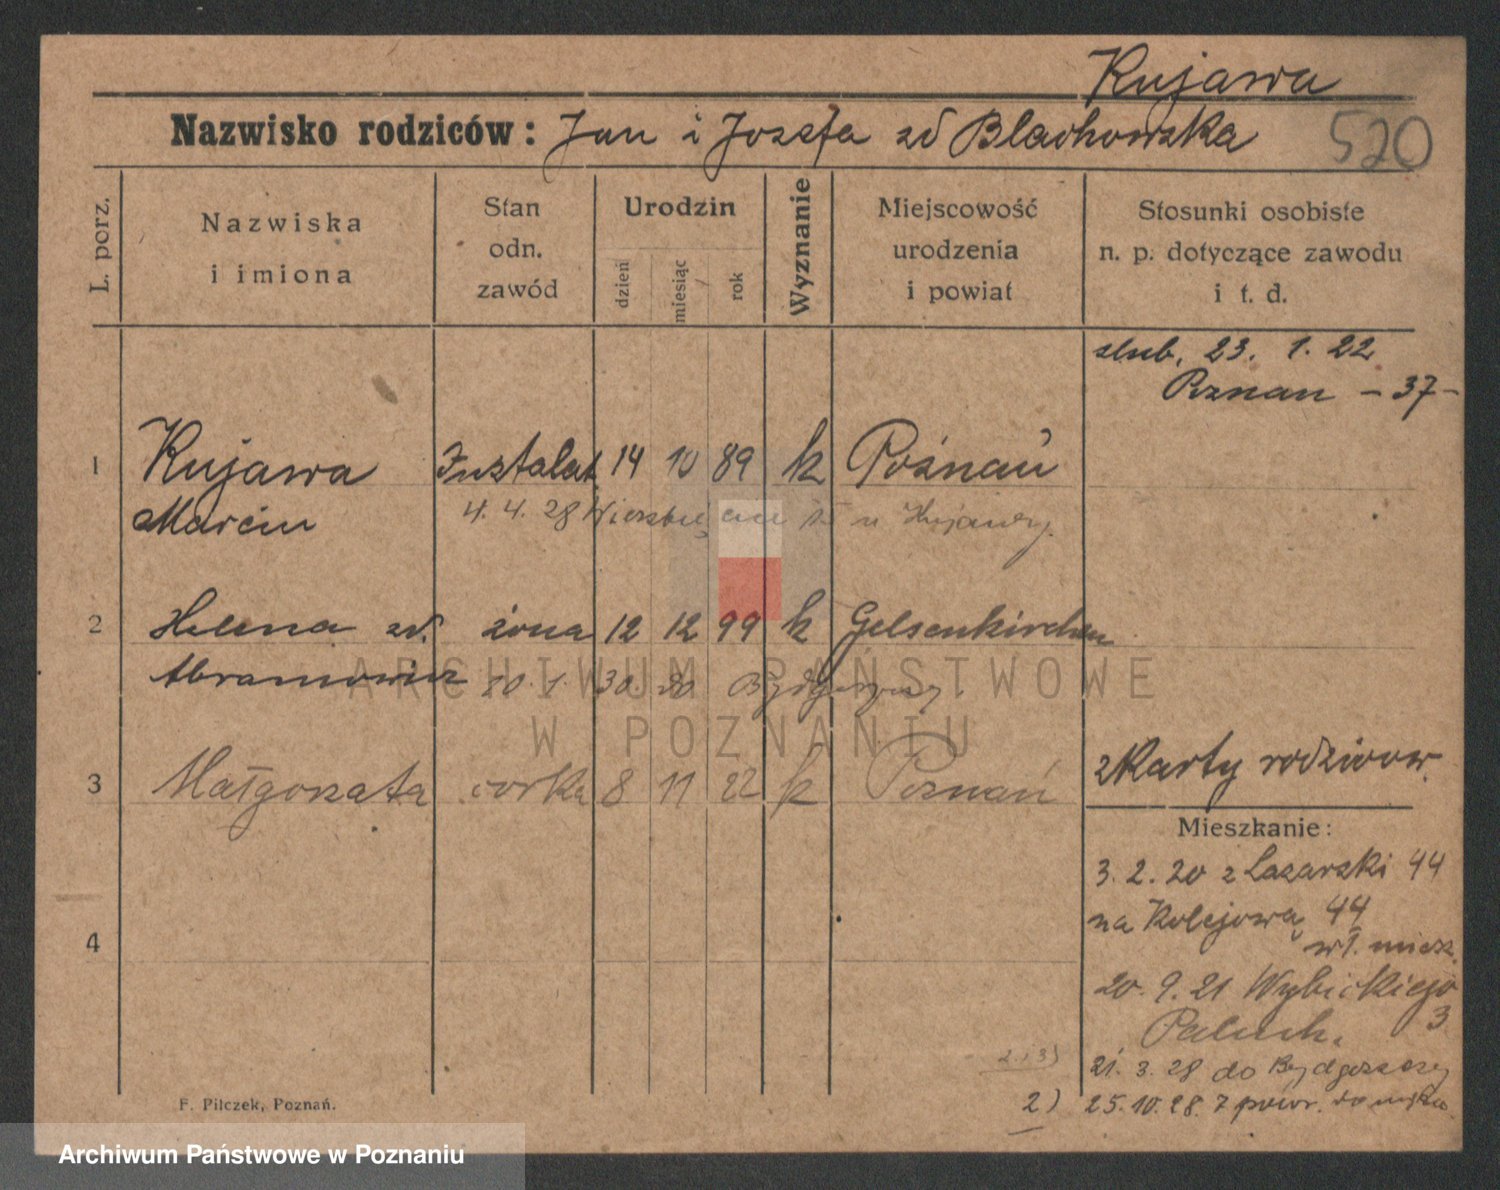 Kujawa
Nazwisko rodziców: Jan i Józefa zd Blachowska 520
L. porz.
Nazwiska i imiona
Stan odn. zawód
Urodzin
dzień
miesiąc
rok
Wyznanie
Miejscowość urodzenia i powiat
Stosunki osobiste n. p. dotyczące zawodu i t. d.
slub. 23. 1. 22
Poznan - 37 -
1 Kujawa Instalat. 14 10 89 k Poznań
Marcin 4. 4. 28 Wierzbięcice 15 u Kujawy.
2 Helena zd. żona 12 12 99 k Gelsenkirchen
Abramowicz 30. Bydgoszczy.
3 Małgorzata corka 8 11 22 k Poznań
z Karty rodzicow.
Mieszkanie:
3. 2. 20 z Lazarski 44
na Kolejową 44
wł. miesz.
20. 9. 21 Wybickiego 3
Paluch.
2 i 3) 21. 3. 28 do Bydgoszczy
2) 25. 10. 28. z powr. do męża
4
F. Pilczek, Poznań.
ARCHIWUM PAŃSTWOWE
W POZNANIU
Archiwum Państwowe w Poznaniu